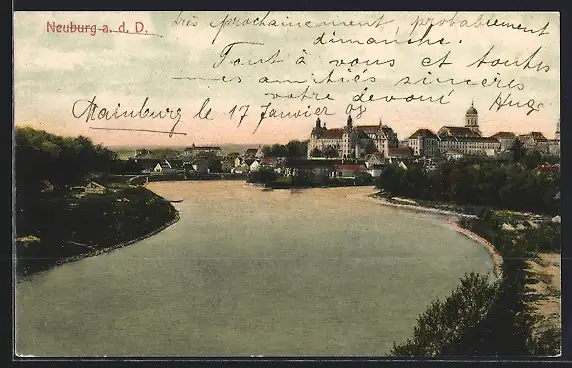 Neuburg a. d. D.
très prochainement, probablement
dimanche.
Tout à vous et toutes
mes amitiés sincères
votre dévoué Hugo
Mainburg le 17 Janvier 09